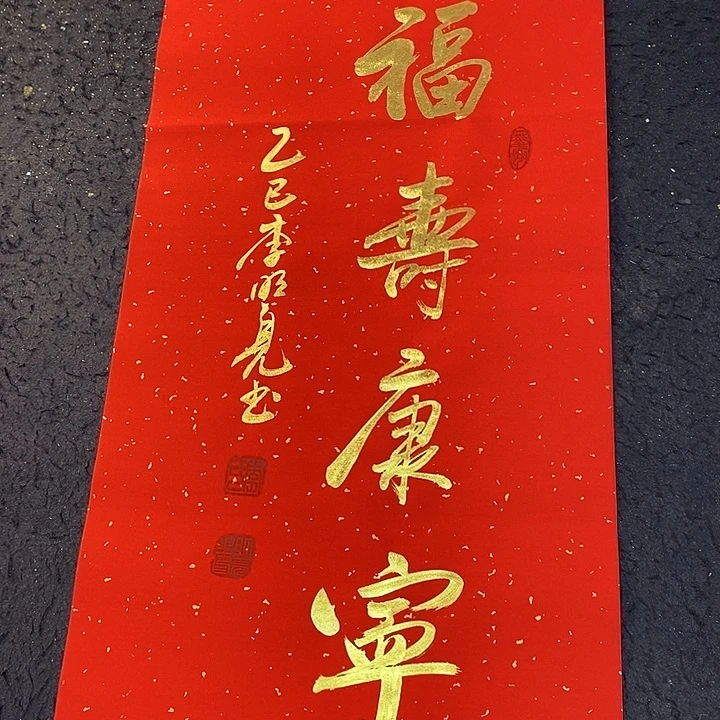 福壽康寧
乙巳李明見书